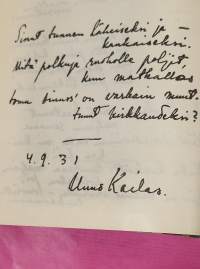 Sinut tunnen läheiseksi ja —
kaukaiseksi.
Mitä polkuja rauhalle poljit,
kun matkallas
loma sinuss' on varhain muut-
tunut kirkkaudeksi?
4.9.31
Uuno Kailas.